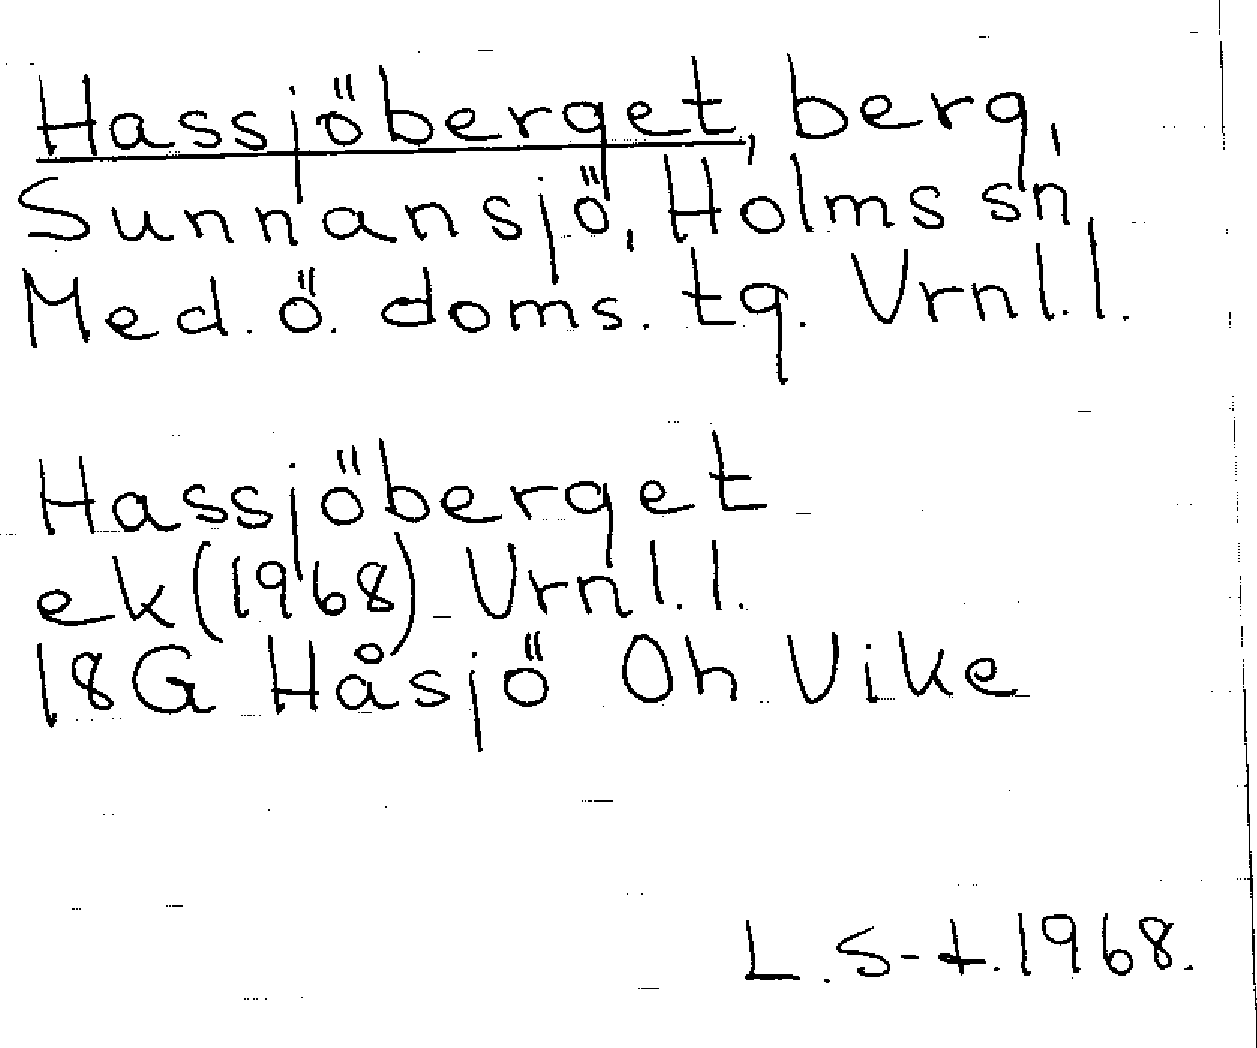 Hassjöberget, berg,
Sunnansjö, Holms sn,
Med. ö. doms. tg. Vrnl.l.
Hassjöberget
ek (1968) Vrnl.l.
18G Håsjö Oh Vike
L. S-t. 1968.